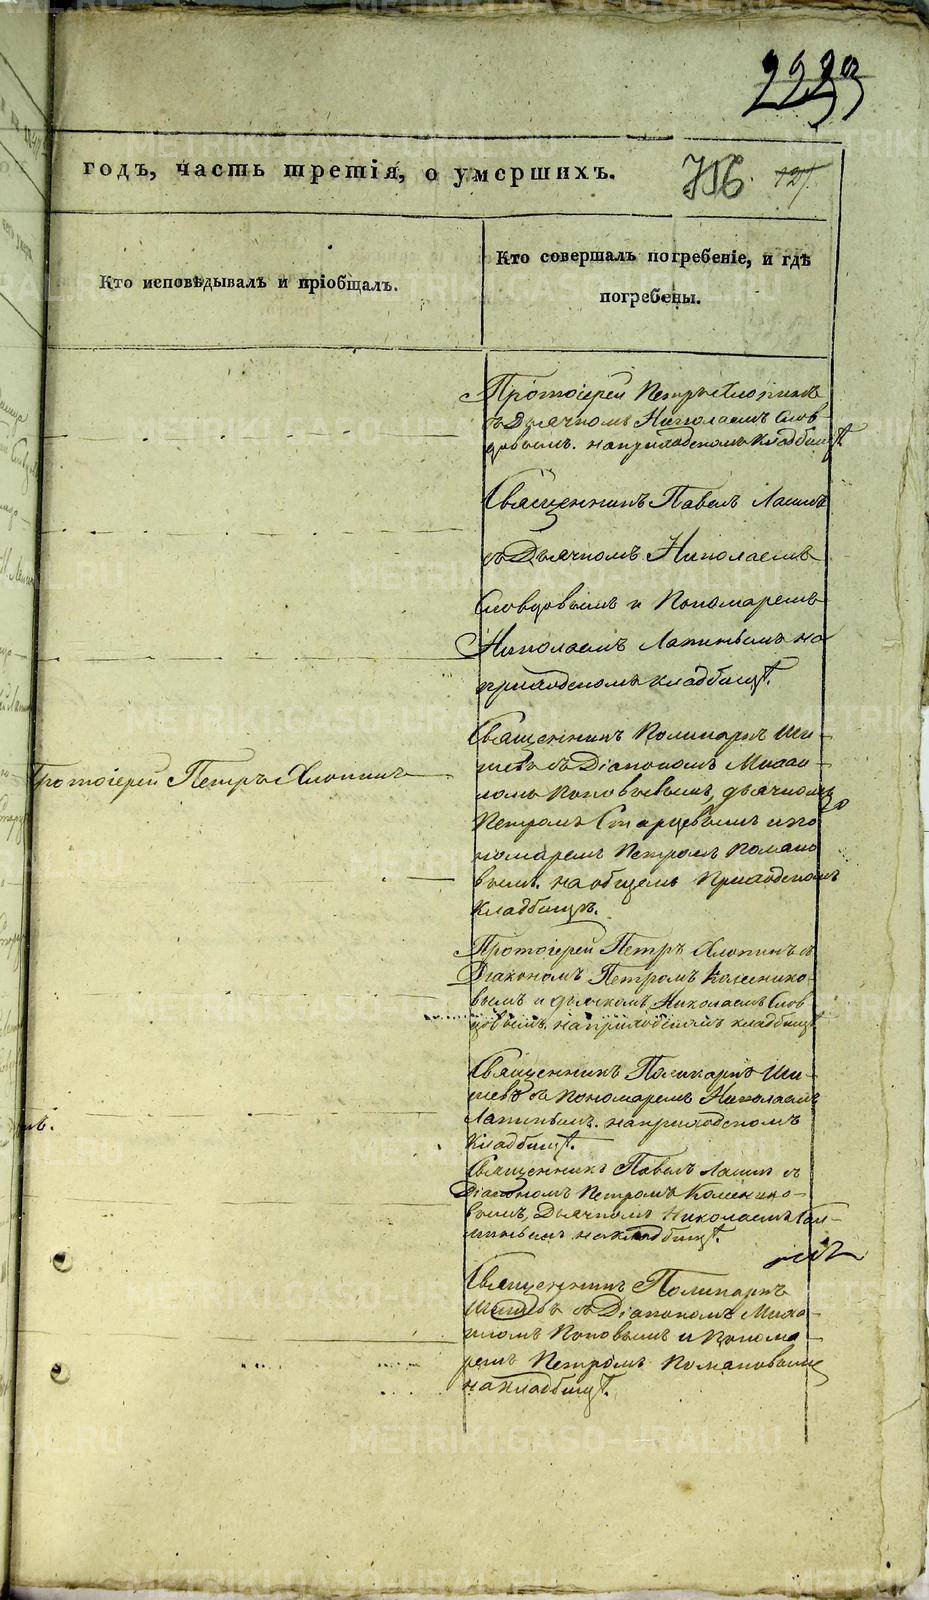 годъ, часть третія, о умершихъ.
Кто исповѣдывалъ и пріобщалъ.
Кто совершалъ погребеніе, и гдѣ
погребены.
Протоіерей Петръ Хлопинъ
съ Дьячкомъ Николаемъ Слов-
цовымъ. на приходскомъ кладбищѣ
Священникъ Павелъ Лапинъ
съ Дьячкомъ Николаемъ
Словцовымъ и Пономаремъ
Николаемъ Лапинымъ на
приходскомъ кладбищѣ.
Протоіерей Петръ Хлопинъ
Священникъ Поликарпъ Ши-
съ Діакономъ Миха-
ломъ Поповымъ, дьячкомъ
Петромъ Старцевымъ и по
номаремъ Петромъ
на общемъ Приходскомъ
Кладбищѣ.
Протоіерей Петръ Хлопинъ съ
Діакономъ Петромъ Колчинко-
вымъ и дьячкомъ Николаемъ Слов
цовымъ, на приходскомъ кладбищѣ
Священникъ Поликарпъ Ши-
съ Пономаремъ Николаемъ
Лапинымъ. на приходскомъ
Кладбищѣ.
Священникъ Павелъ Лапинъ съ
Діакономъ Петромъ
вымъ, Дьячкомъ Николаемъ
на кладбищѣ.
Священникъ Поликарпъ
съ Діакономъ Миха-
иломъ Поповымъ и Понома-
ремъ Петромъ
на кладбищѣ.
METRIKI.GASO-URAL.RU